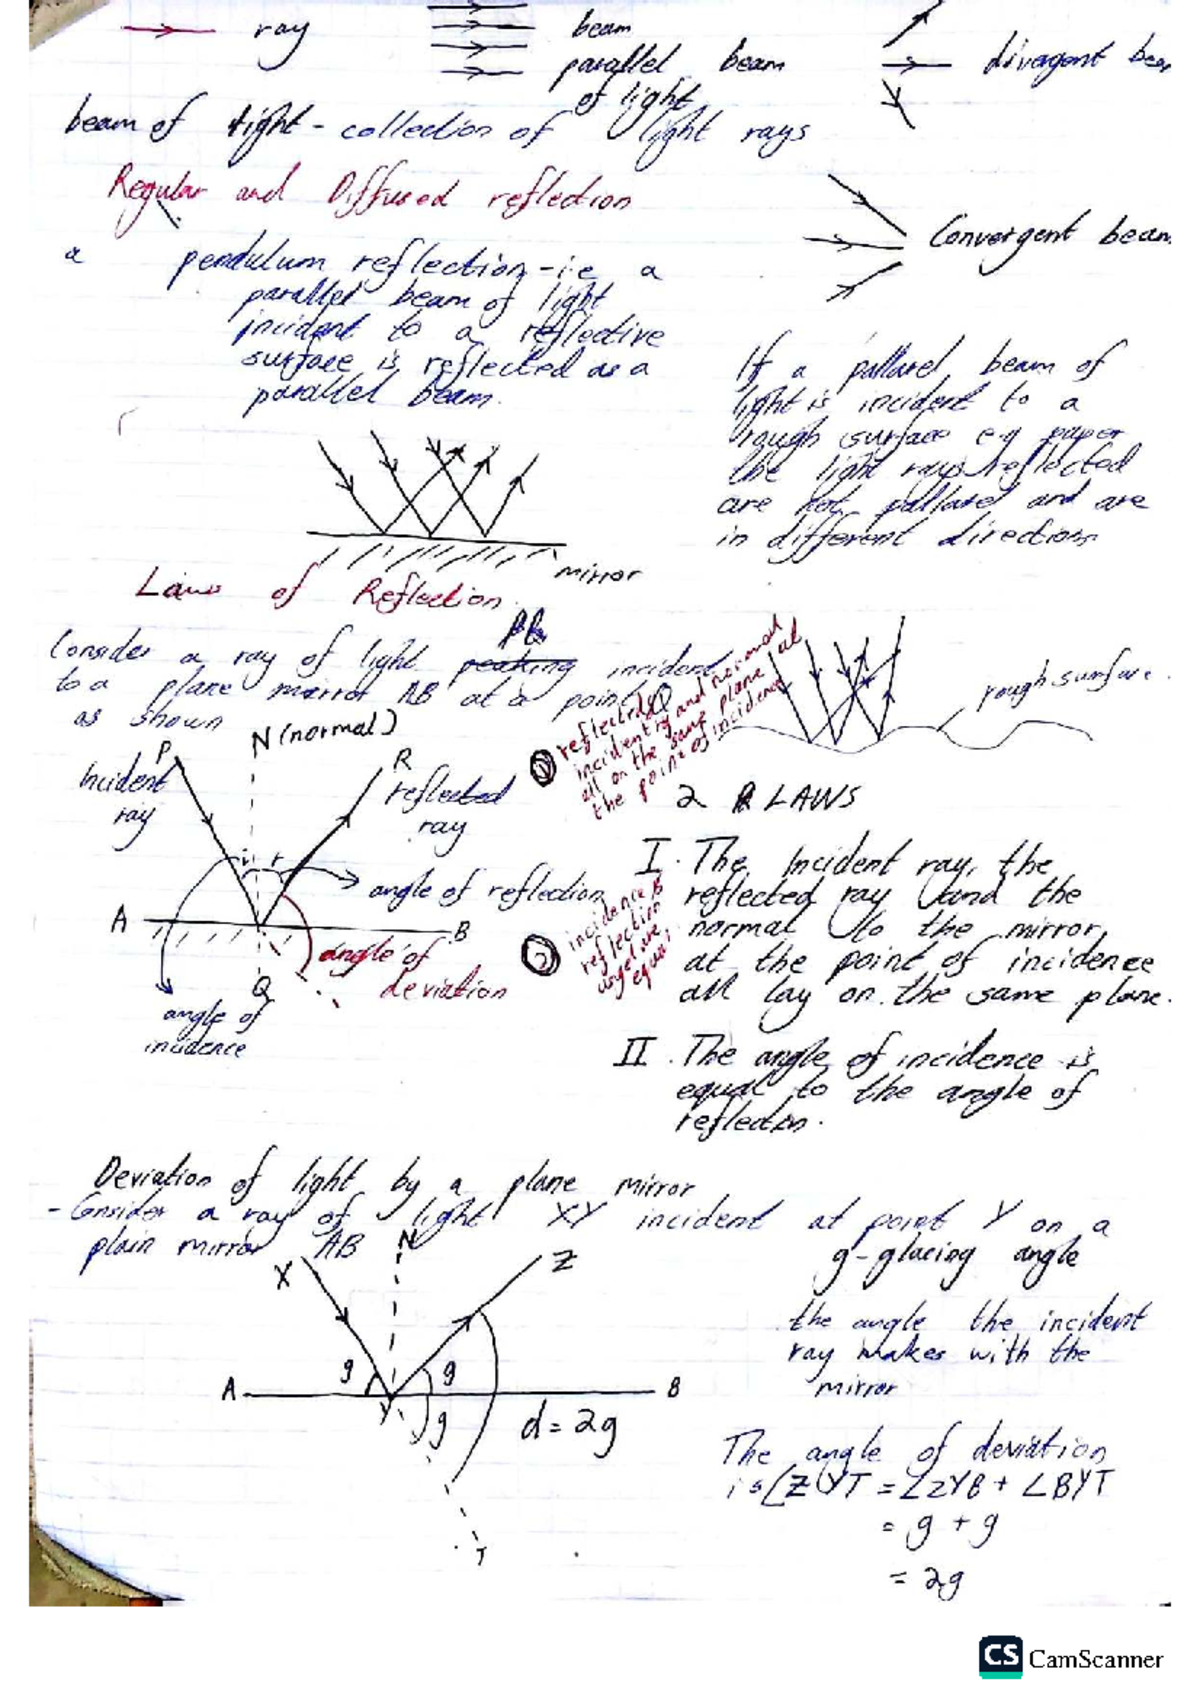 ray
beam
parallel beam
of light
divergent bea
beam of light - collection of light rays
Regular and Diffused reflection
Convergent beam
a pendulum reflection - i.e a
parallel beam of light
incident to a reflective
surface is reflected as a
parallel beam.
If a pallarel beam of
light is incident to a
rough surface e.g paper
the light rays reflected
are not pallarel and are
in different directions
mirror
Laws of Reflection
Consider a ray of light incident
to a plane mirror AB at a point Q
as shown
N (normal)
P
Incident
ray
R
reflected
ray
i r
angle of reflection
A
B
Q
angle of
deviation
angle of
incidence
reflected
incident ray and normal
all on the same plane at
the point of incidence
rough surface.
2 LAWS
I. The Incident ray, the
reflected ray and the
normal to the mirror,
at the point of incidence
all lay on the same plane.
incidence &
reflection
angel are
equal
II. The angle of incidence is
equal to the angle of
reflection.
Deviation of light by a plane mirror
- Consider a ray of light XY incident at point Y on a
plain mirror AB
g - glacing angle
the angle the incident
ray makes with the
mirror
N
X
Z
g
g
A
B
Y
g
d = 2g
T
The angle of deviation
is ∠ZYT = ∠ZYB + ∠BYT
= g + g
= 2g
CS CamScanner